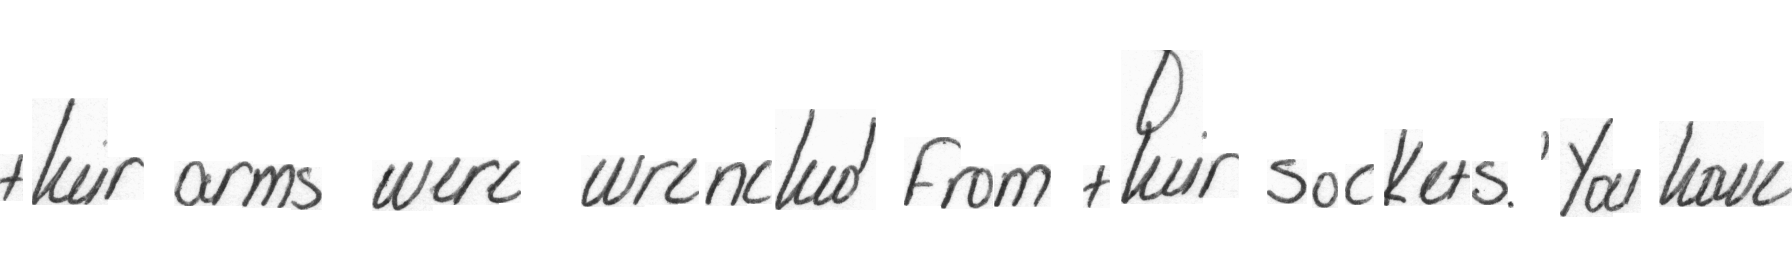 their arms were wrenched from their sockets. 'You have